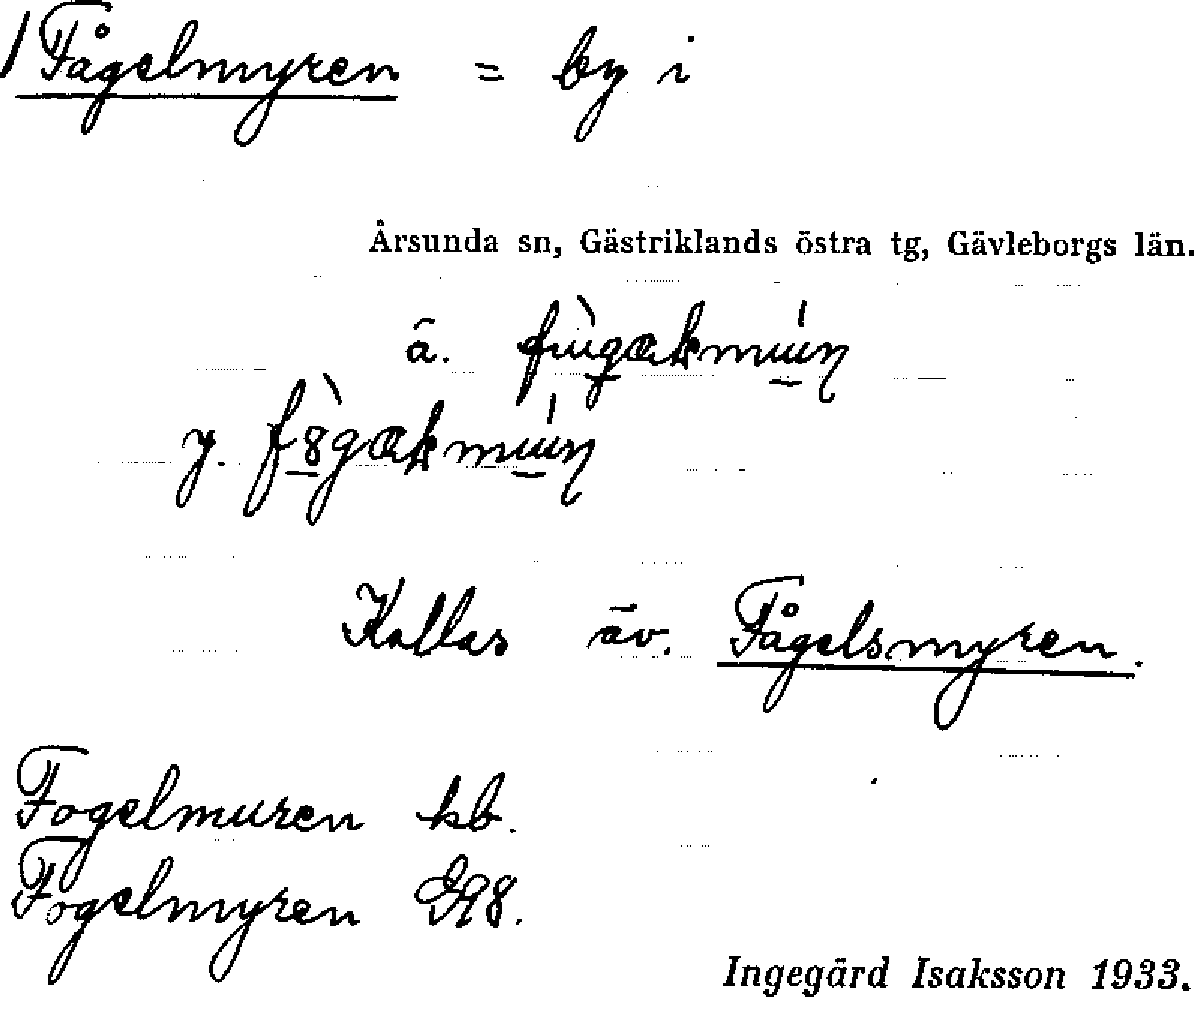 Fågelmyren = by i
Årsunda sn, Gästriklands östra tg, Gävleborgs län.
ä.
y.
Kallas äv. Fågelsmyren.
Fogelmuren kb.
Fogelmyren G98.
Ingegärd Isaksson 1933.